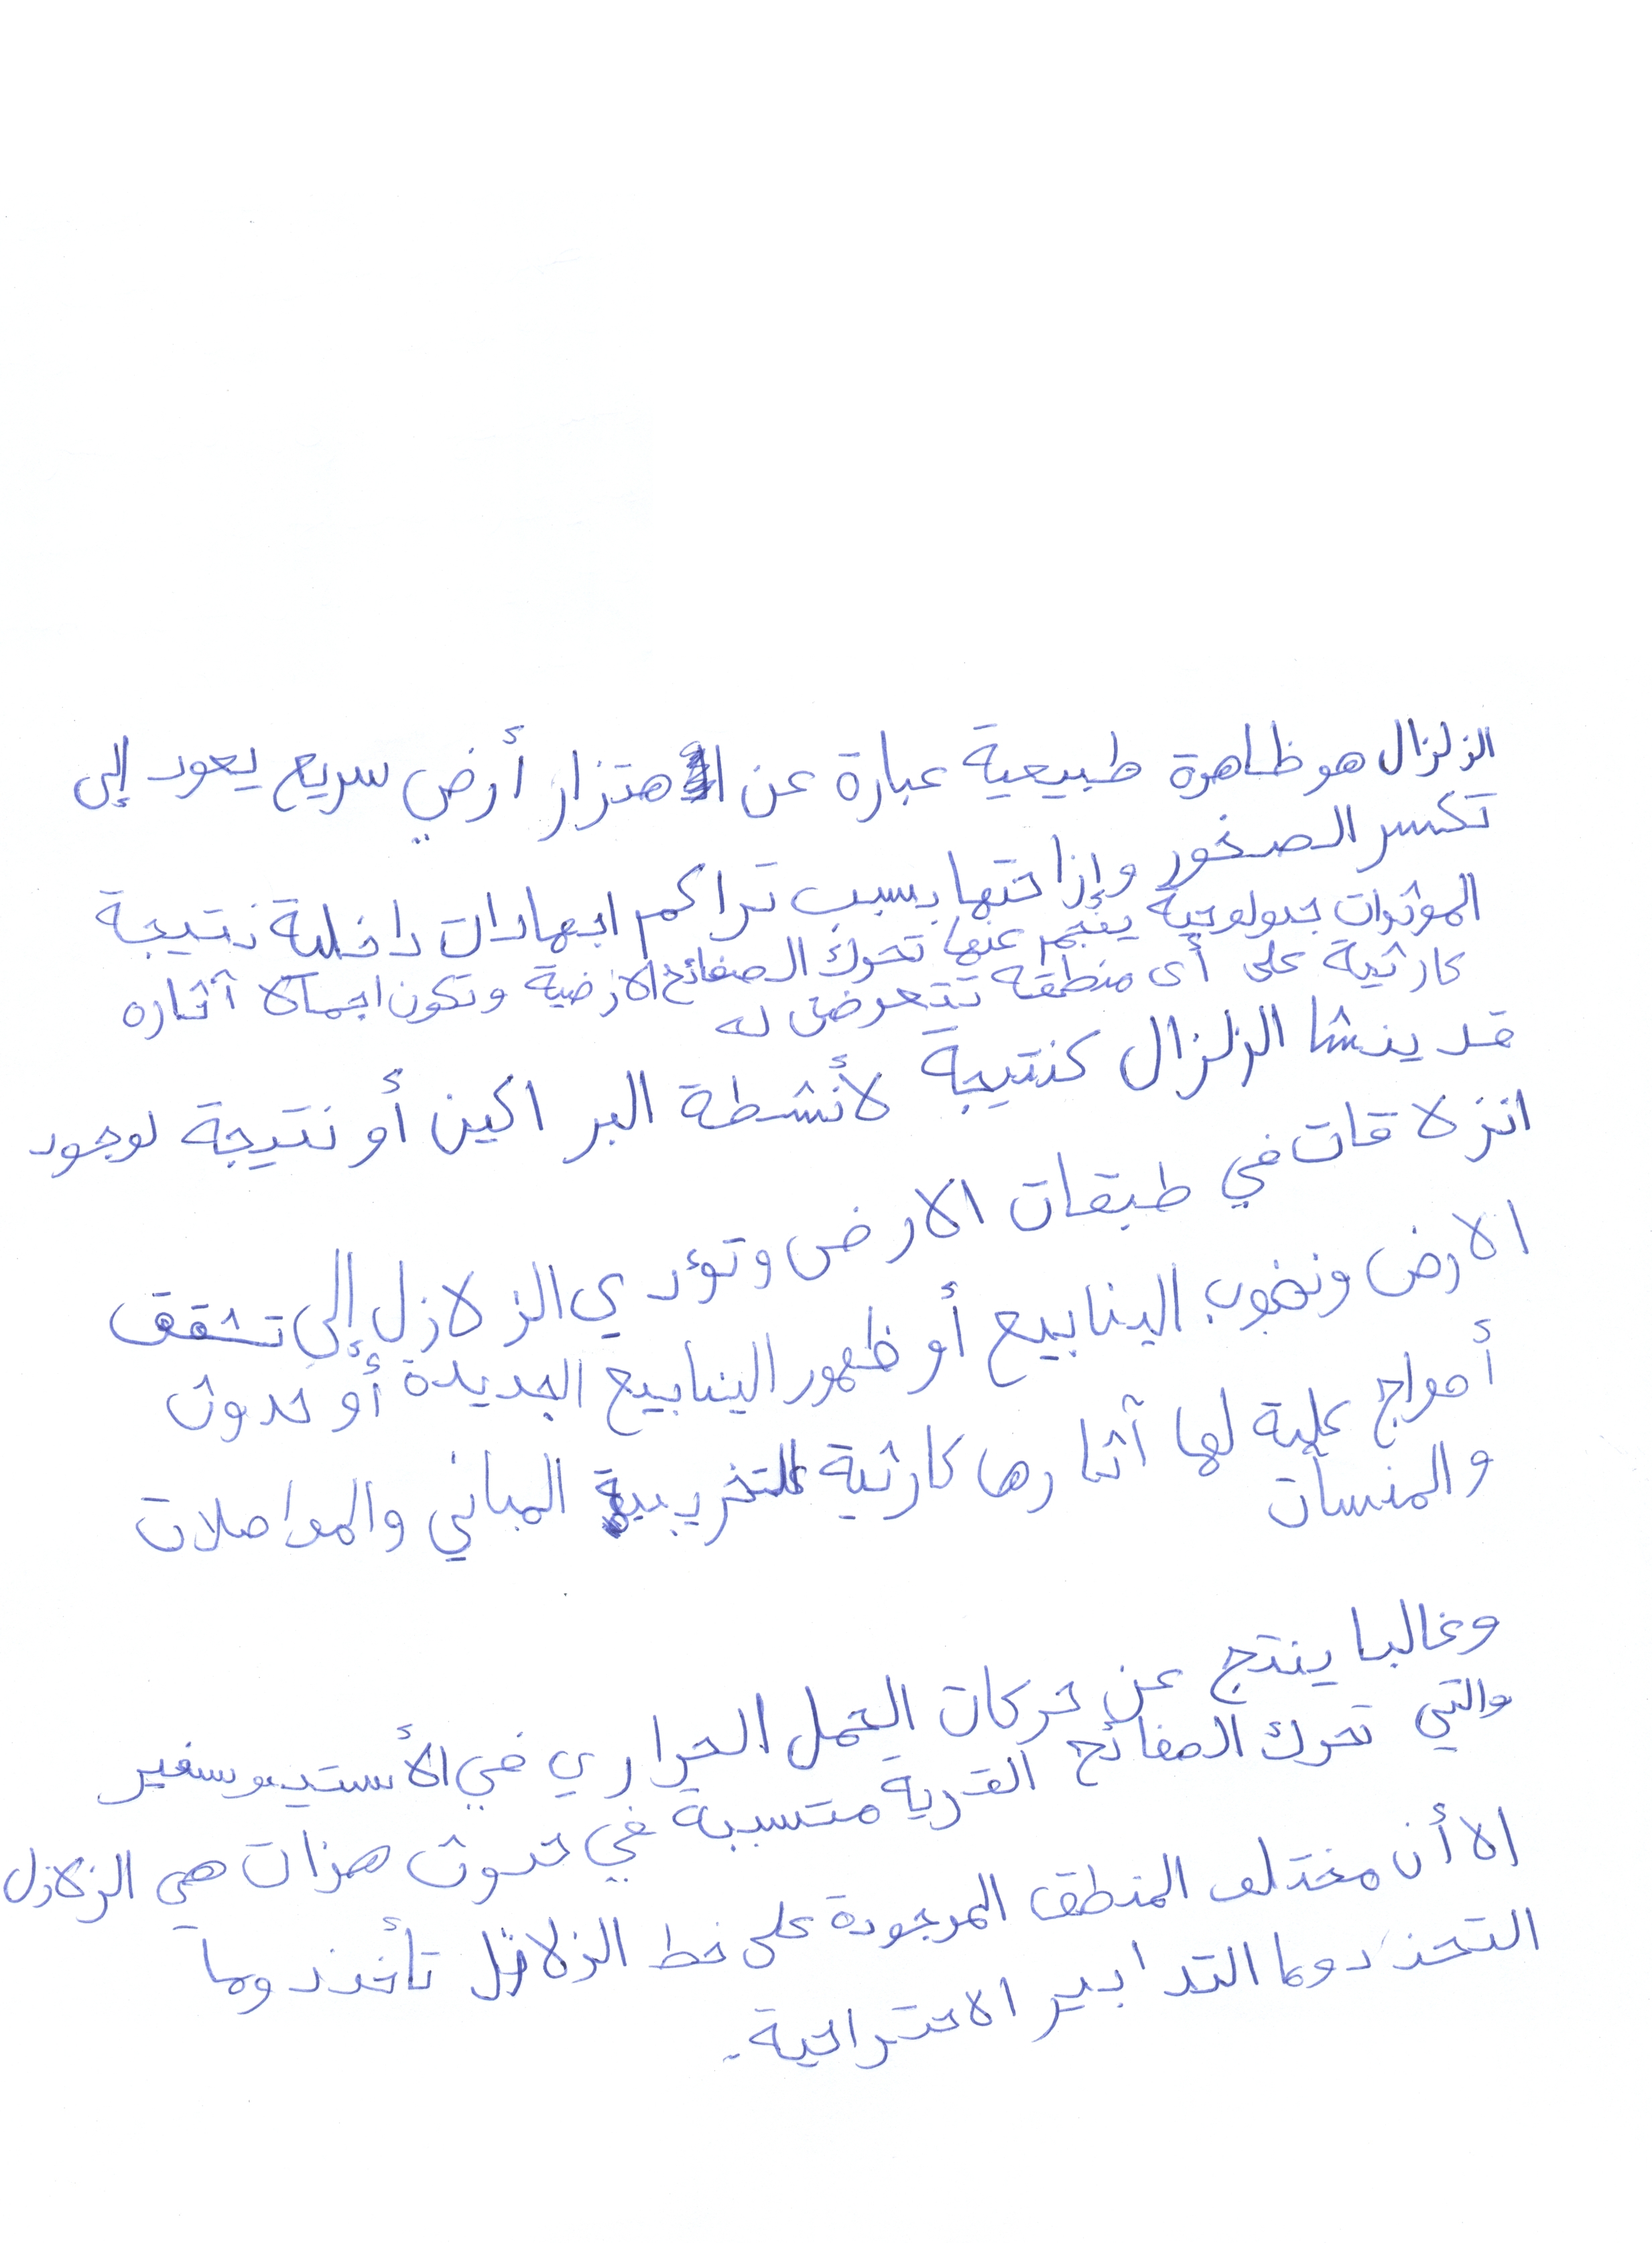 الزلزال هو ظاهرة طبيعية عبارة عن اهتزاز أرضي سريع يعود إلى
تكسر الصخور وإزاحتها بسبب تراكم اجهادات داخلية نتيجة
المؤثرات جيولوجية ينجم عنها تحرك الصفائح الارضية وتكون اجمالا آثاره
كارثية على أى منطقه تتعرض له
قد ينشا الزلزال كنتيجة لأنشطة البراكين أو نتيجة لوجود
انزلاقات في طبقات الارض وتؤدي الزلازل إلى تشقق
الارض ونضوب الينابيع أو ظهور الينابيع الجديدة أو حدوث
أمواج علية لها آثارها كارثية للتخريبية المباني والمواصلات
والمنسأت
وغالبا ينتج عن حركات الحمل الحراري في الأستينوسفير
والتي تحرك الصفائح القدرية متسببة في حدوث هزات هي الزلازل
الا أن مختلف المنطق الموجودة على خط الزلازل تأخذ دوما
التحذ دوما التدابير الاحتراحية.